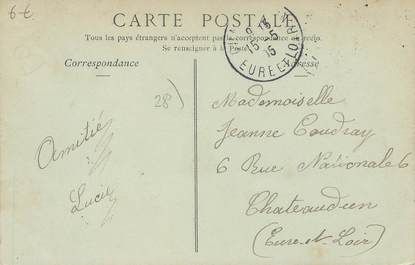 6€
CARTE POSTALE
Tous les pays étrangers n'acceptent pas la correspondance au recto.
Se renseigner à la Poste
Correspondance
Adresse
15-5
15
EURE-ET-LOIR
28)
Mademoiselle
Jeanne Coudray
6 Rue Nationale 6
Chateaudun
(Eure-et-Loir)
Amitié
Lucie